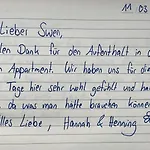 11 03
Lieber Swen,
len Dank für den Aufenthalt in d
Appartment. Wir haben uns für die
Tage hier sehr wohl gefühlt und ha
da was man hätte brauchen könne
lles Liebe, Hannah & Henning